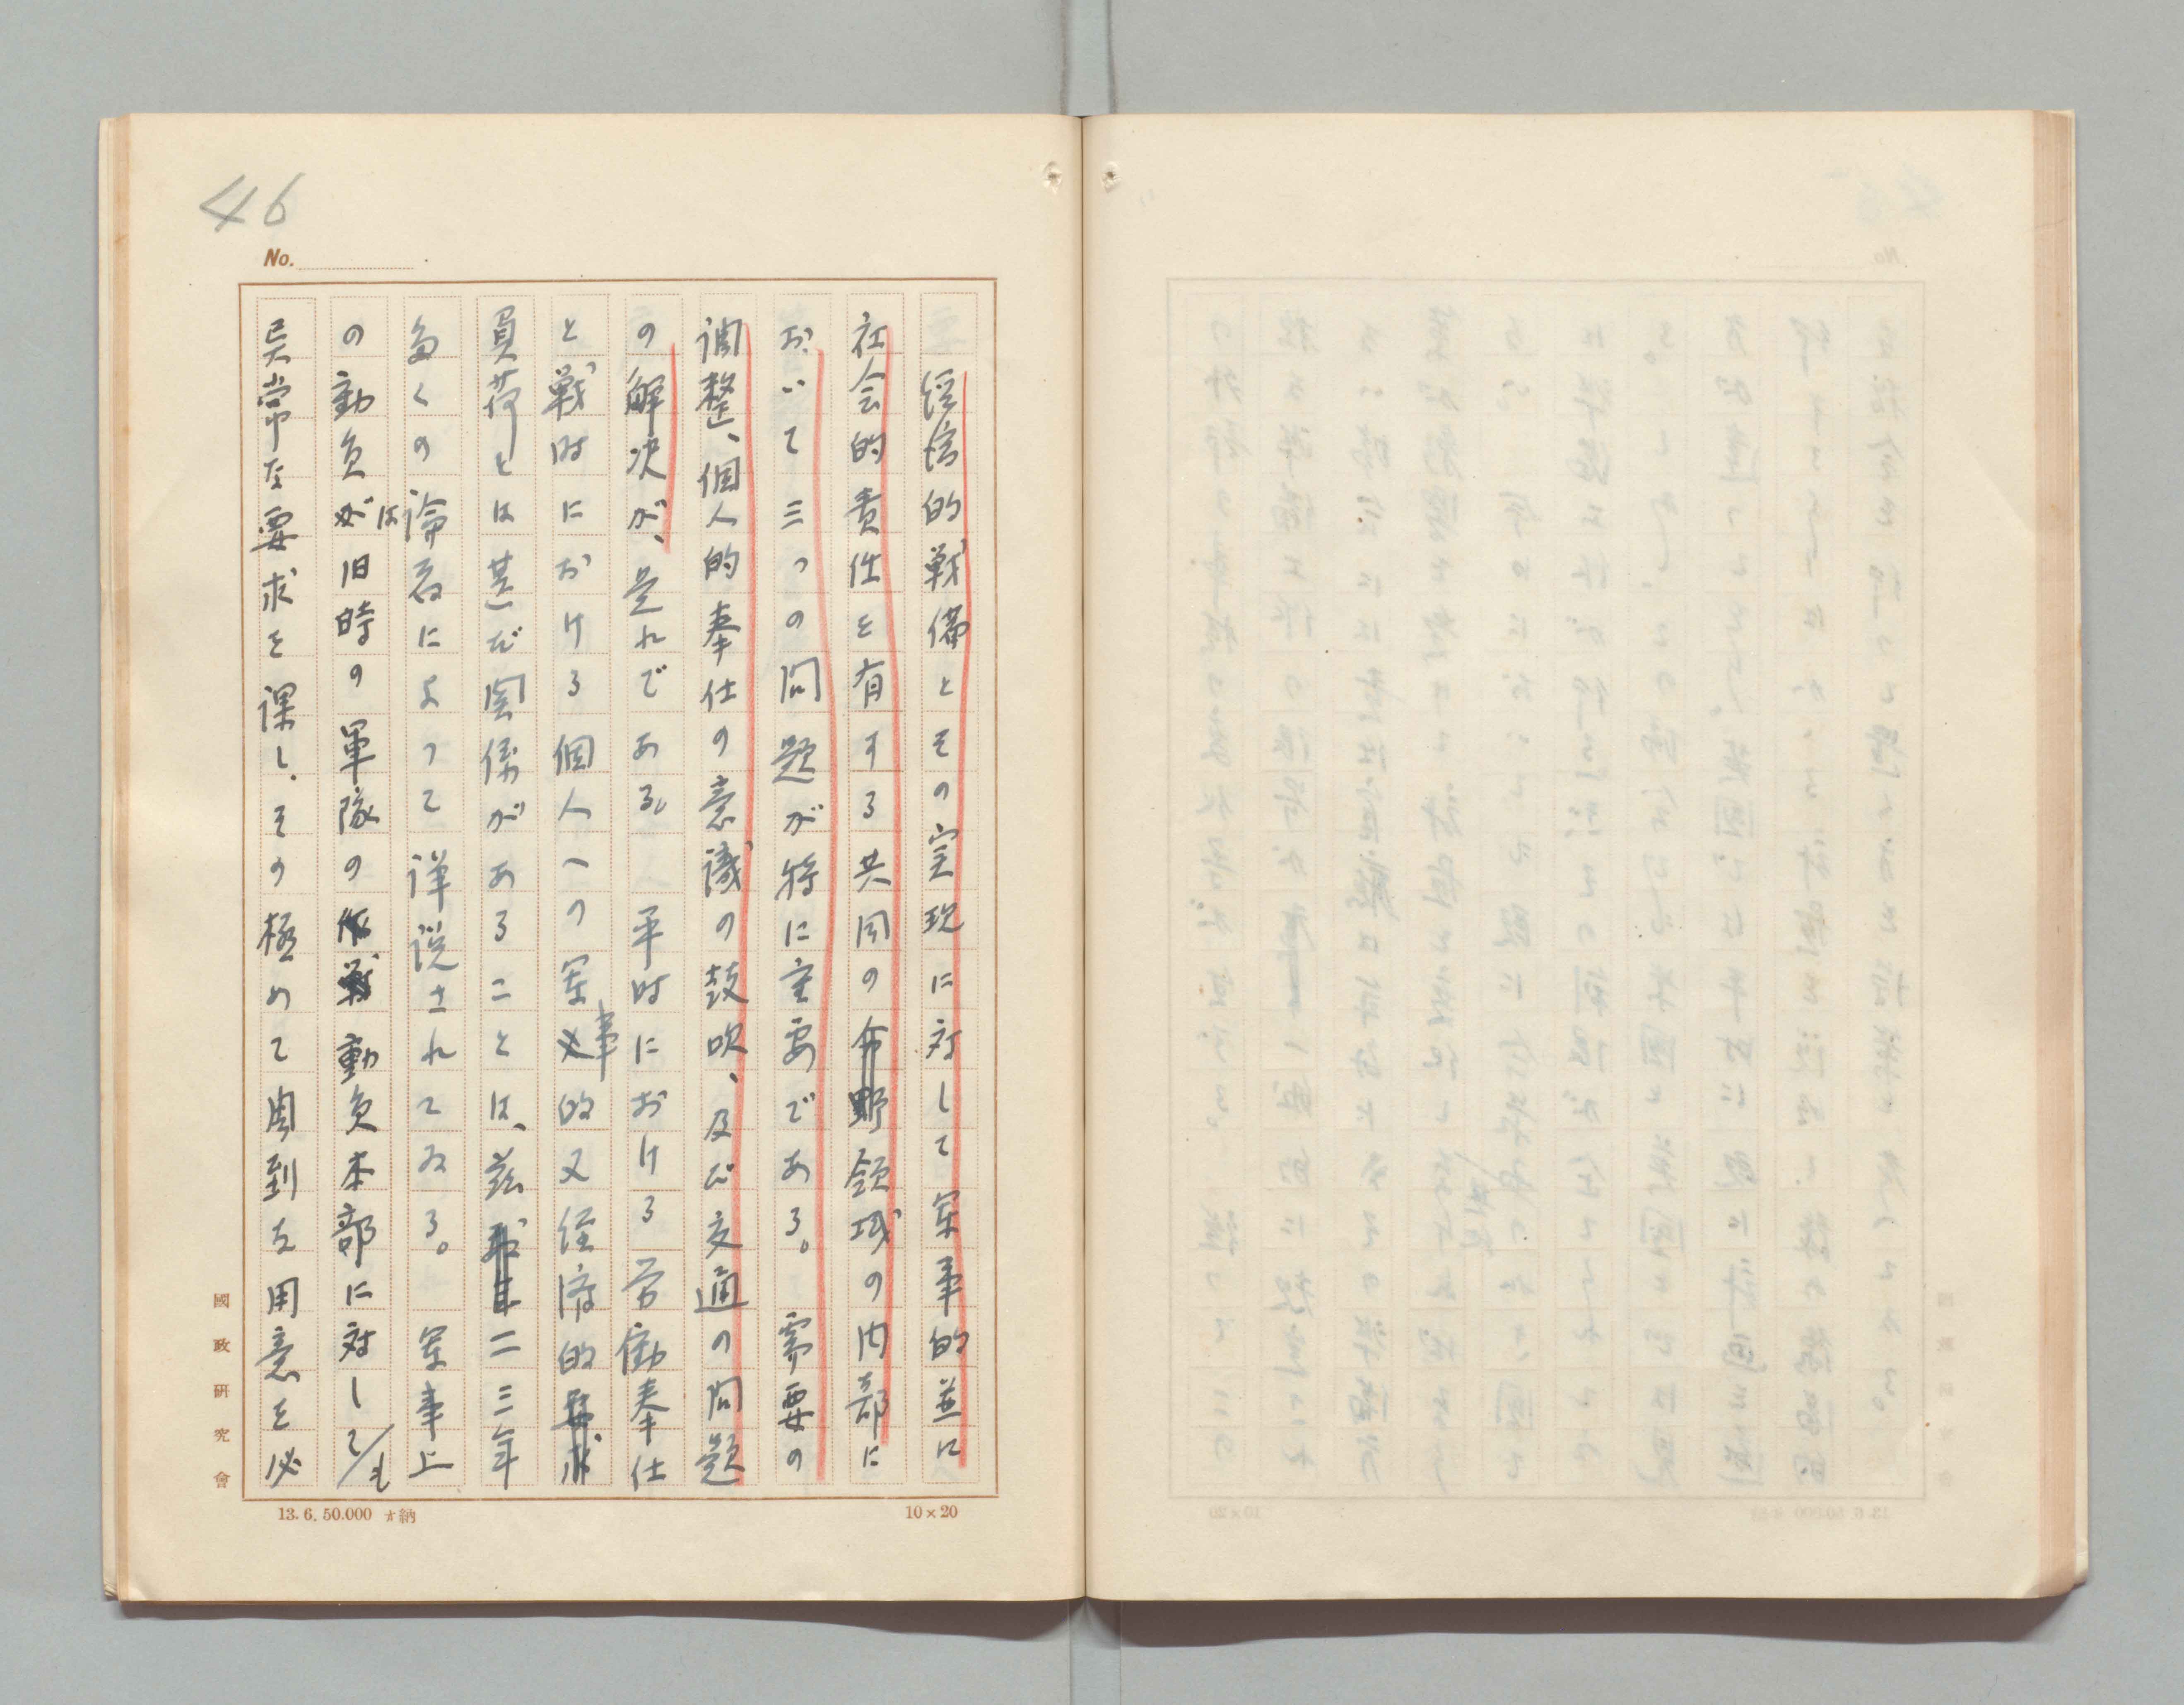 46
No.
経済的戦備とその実現に対して軍事的並に
社会的責任を有する共同の領域の内部に
おいて三つの問題が特に重要である。需要の
調整、個人的奉仕の意識の鼓吹、及び交通の問題
の解決が、是れである。平時における労働奉仕
と戦時における個人への軍事的又経済的
負荷とは甚だ関係があることは、茲二三年
多くの論者によつて詳説されてゐる。軍事上
の動員は旧時の軍隊の動員本部に対しても
異常な要求を課し、その極めて周到な用意を必
國政研究會
13.6.50.000 納
10×20